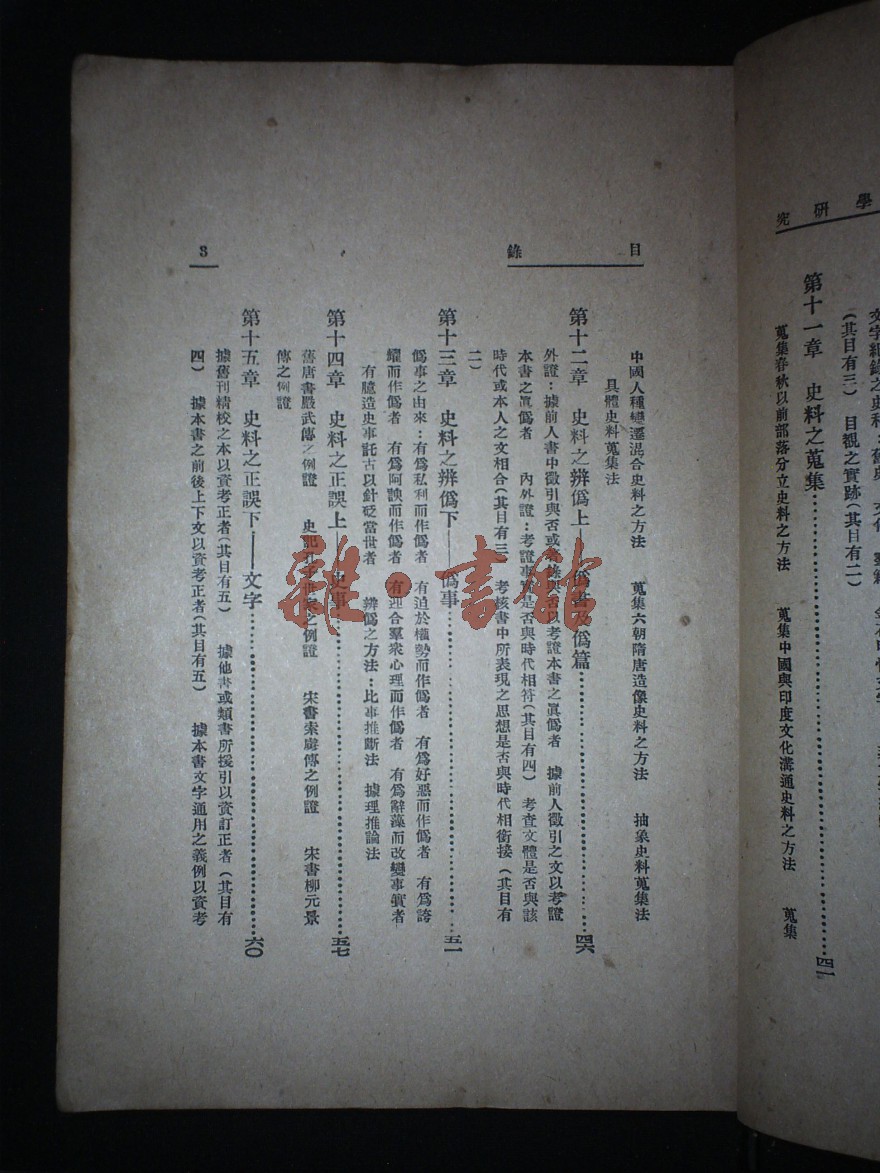 學研究
文字紀錄之史料：舊史
（其目有三） 目覩之實跡（其目有二）
第十一章 史料之蒐集……四一
蒐集春秋以前部落分立史料之方法 蒐集中國與印度文化溝通史料之方法 蒐集
目錄
中國人種變遷混合史料之方法 蒐集六朝隋唐造像史料之方法 抽象史料蒐集法
具體史料蒐集法
第十二章 史料之辨僞上——僞書及僞篇……四六
外證：據前人書中徵引與否或著錄與否以考證本書之眞僞者 據前人徵引之文以考證
本書之眞僞者 內外證：考證事實是否與時代相符（其目有四） 考查文體是否與該
時代或本人之文相合（其目有三） 考核書中所表現之思想是否與時代相銜接（其目有
二）
第十三章 史料之辨僞下——僞事……五一
僞事之由來：有爲私利而作僞者 有迫於權勢而作僞者 有爲好惡而作僞者 有爲誇
耀而作僞者 有爲阿諛而作僞者 有迎合羣衆心理而作僞者 有爲辭藻而改變事實者
有臆造史事託古以針砭當世者 辨僞之方法：比事推斷法 據理推論法
第十四章 史料之正誤上——史事……五七
舊唐書嚴武傳之例證 史記孔子世家之例證 宋書索虜傳之例證 宋書柳元景
傳之例證
第十五章 史料之正誤下——文字……六〇
據舊刊精校之本以資考正者（其目有五） 據他書或類書所援引以資訂正者（其目有
四） 據本書之前後上下文以資考正者（其目有五） 據本書文字通用之義例以資考
3
雜·書館